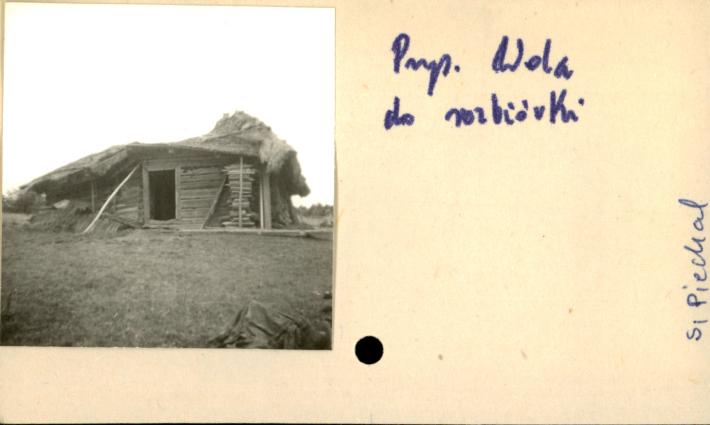 Przyp. Wola
do rozbiórki
St Piechal